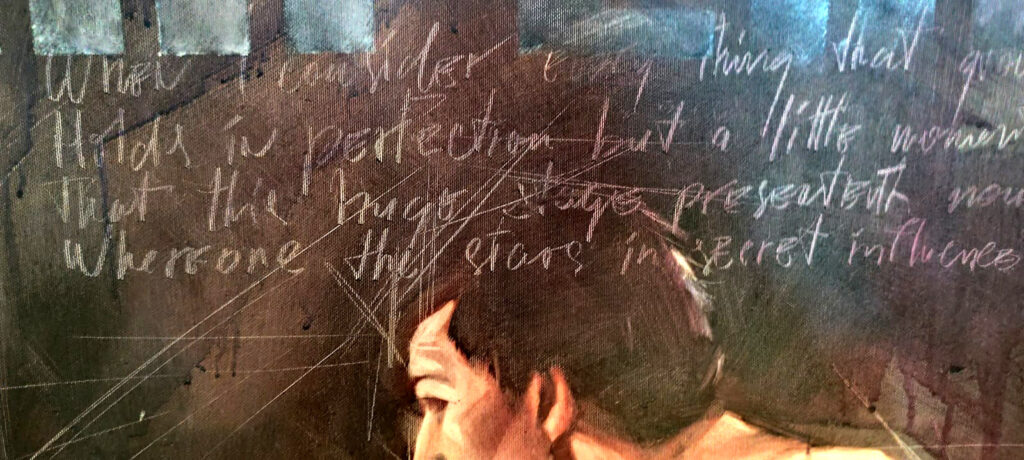 When I consider every thing that
Holds in perfection but a little moment
That this huge stage presenteth nou
Whereone the stars in secret influence